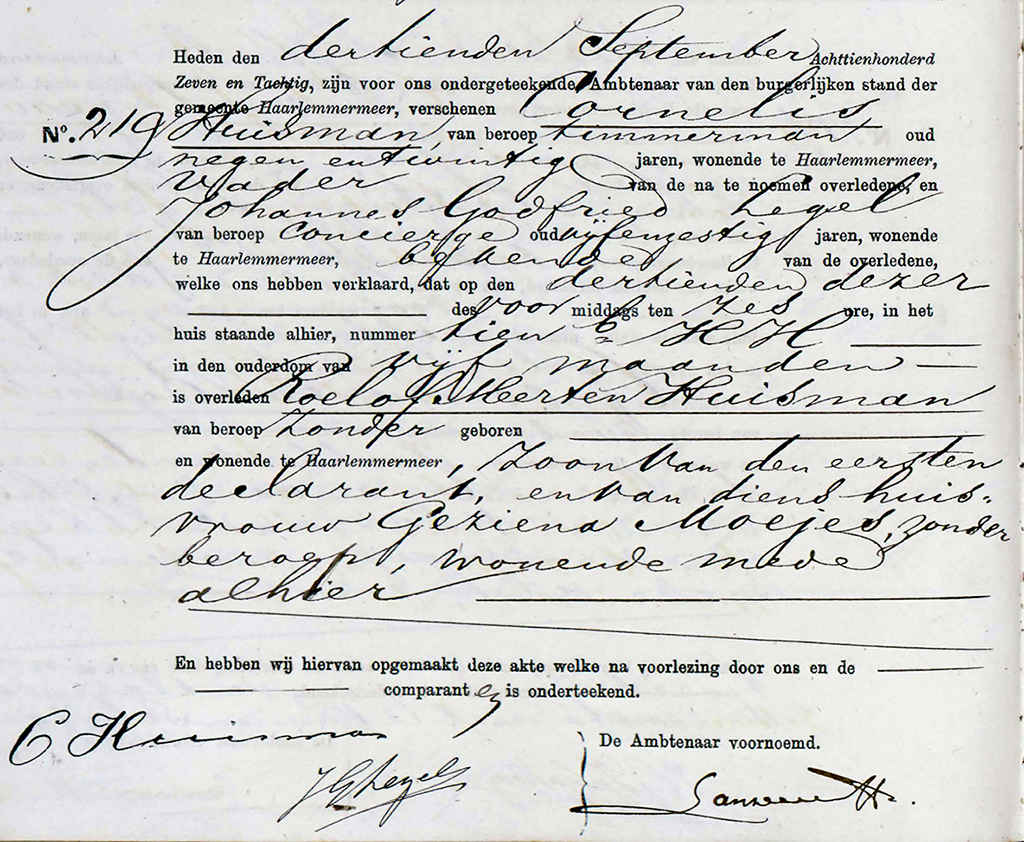 Heden den dertienden September Achttienhonderd
Zeven en Tachtig, zijn voor ons ondergeteekende, Ambtenaar van den burgerlijken stand der
gemeente Haarlemmermeer, verschenen Cornelis
No. 219 Huisman, van beroep timmerman oud
negen en twintig jaren, wonende te Haarlemmermeer,
vader van de na te noemen overledene, en
Johannes Godfried Legel
van beroep concierge oud vijfenzestig jaren, wonende
te Haarlemmermeer, bekende van de overledene,
welke ons hebben verklaard, dat op den dertienden dezer
des voor middags ten zes ure, in het
huis staande alhier, nummer tien b HH
in den ouderdom van vijf maanden
is overleden Roelof Meerten Huisman
van beroep zonder geboren
en wonende te Haarlemmermeer, zoon van den eersten
declarant, en van diens huis=
vrouw Geziena Moejes, zonder
beroep, wonende mede
alhier
En hebben wij hiervan opgemaakt deze akte welke na voorlezing door ons en de
comparanten is onderteekend.
C Huisman
De Ambtenaar voornoemd.
JG Legel